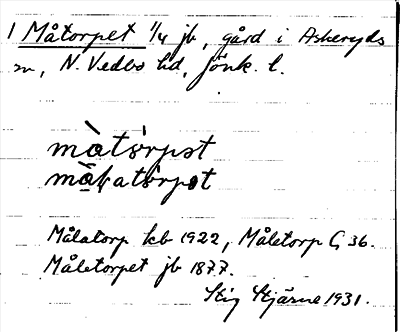 1 Måtorpet 1/4 jb, gård i Askeryds
sn, N. Vedbo hd, Jönk. l.
màtórpət
mɑ̀̊ɭatórpət
Målatorp kb 1922, Måletorp G 36.
Måletorpet jb 1877.
Stig Stjärne 1931.